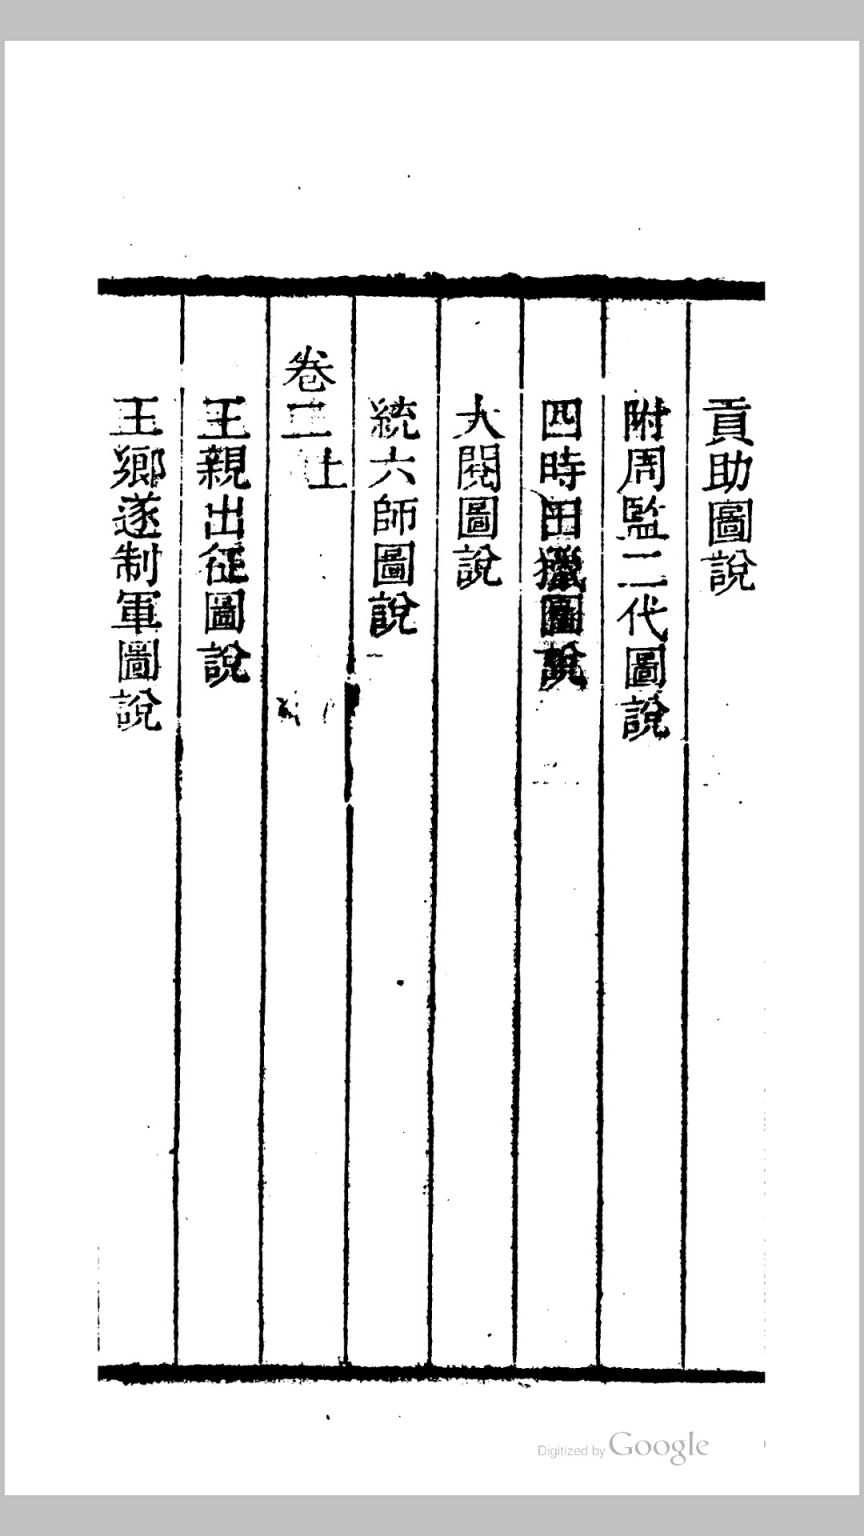 貢助圖說
附周監二代圖說
四時田獵圖說
大閱圖說
統六師圖說
卷二上
王親出征圖說
王鄉遂制軍圖說
Digitized by Google